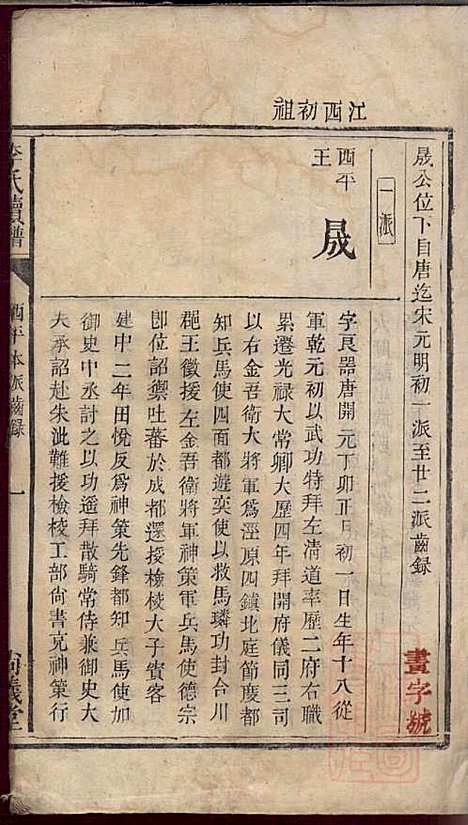 江西初祖
晟公位下自唐迄宋元明初一派至廿二派齒録
畫字號
一派
西平王
晟
字良器唐開元丁卯正月初一日生年十八從
軍乾元初以武功特拜左清道率歷二府右職
累遷光禄大常卿大歷四年拜開府儀同三司
以右金吾衛大將軍爲涇原四鎮北庭節度都
知兵馬使四面都遊奕使以救馬璘功封合川
郡王徵授左金吾衛將軍神策軍兵馬使德宗
卽位詔禦吐蕃於成都還授檢校大子賓客
建中二年田悅反爲神策先鋒都知兵馬使加
御史中丞討之以功遥拜散騎常侍兼御史大
夫承詔赴朱泚難援檢校工部尚書克神策行
李氏續譜
西平本派齒録
一
尚義堂